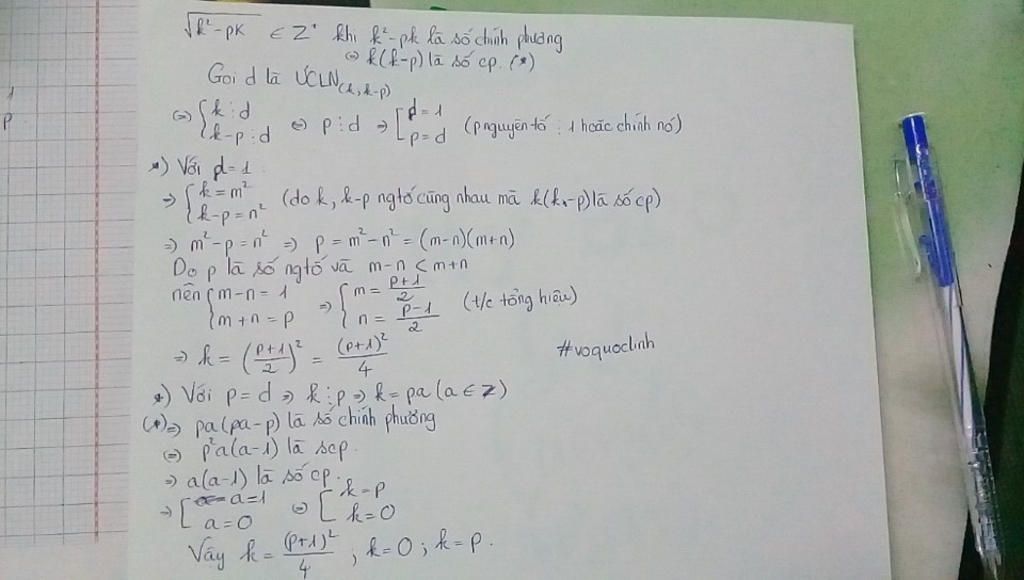 √k²-pK ∈ Z⁺ khi k²-pk là số chính phương
⇔ k(k-p) là số cp. (*)
Gọi d là ƯCLN(k, k-p)
⇒ { k ⋮ d
k-p ⋮ d ⇔ p ⋮ d ⇒ [ d = 1
p = d (p nguyên tố : 1 hoặc chính nó)
*) Với d = 1
⇒ { k = m²
k-p = n² (do k, k-p ngtố cùng nhau mà k(k-p) là số cp)
⇒ m²-p = n² ⇒ p = m²-n² = (m-n)(m+n)
Do p là số ngtố và m-n < m+n
nên { m-n = 1
m+n = p ⇒ { m = (p+1)/2
n = (p-1)/2 (t/c tổng hiệu)
⇒ k = ((p+1)/2)² = (p+1)²/4
#voquoclinh
*) Với p = d ⇒ k ⋮ p ⇒ k = pa (a ∈ Z)
(*) ⇒ pa(pa-p) là số chính phương
⇔ p²a(a-1) là scp.
⇒ a(a-1) là số cp.
⇒ [ a = 1
a = 0 ⇔ [ k = p
k = 0
Vậy k = (p+1)²/4 , k = 0 ; k = p.
1
p